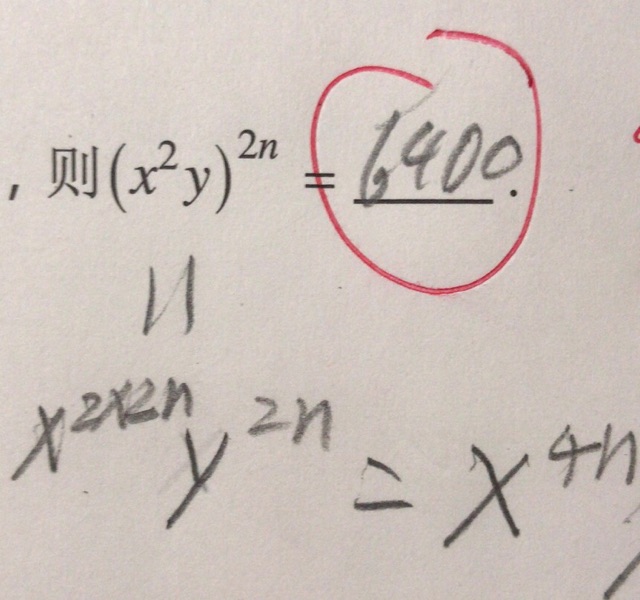 ，则(x²y)²ⁿ = 6400.
||
x²ˣ²ⁿy²ⁿ = x⁴ⁿ